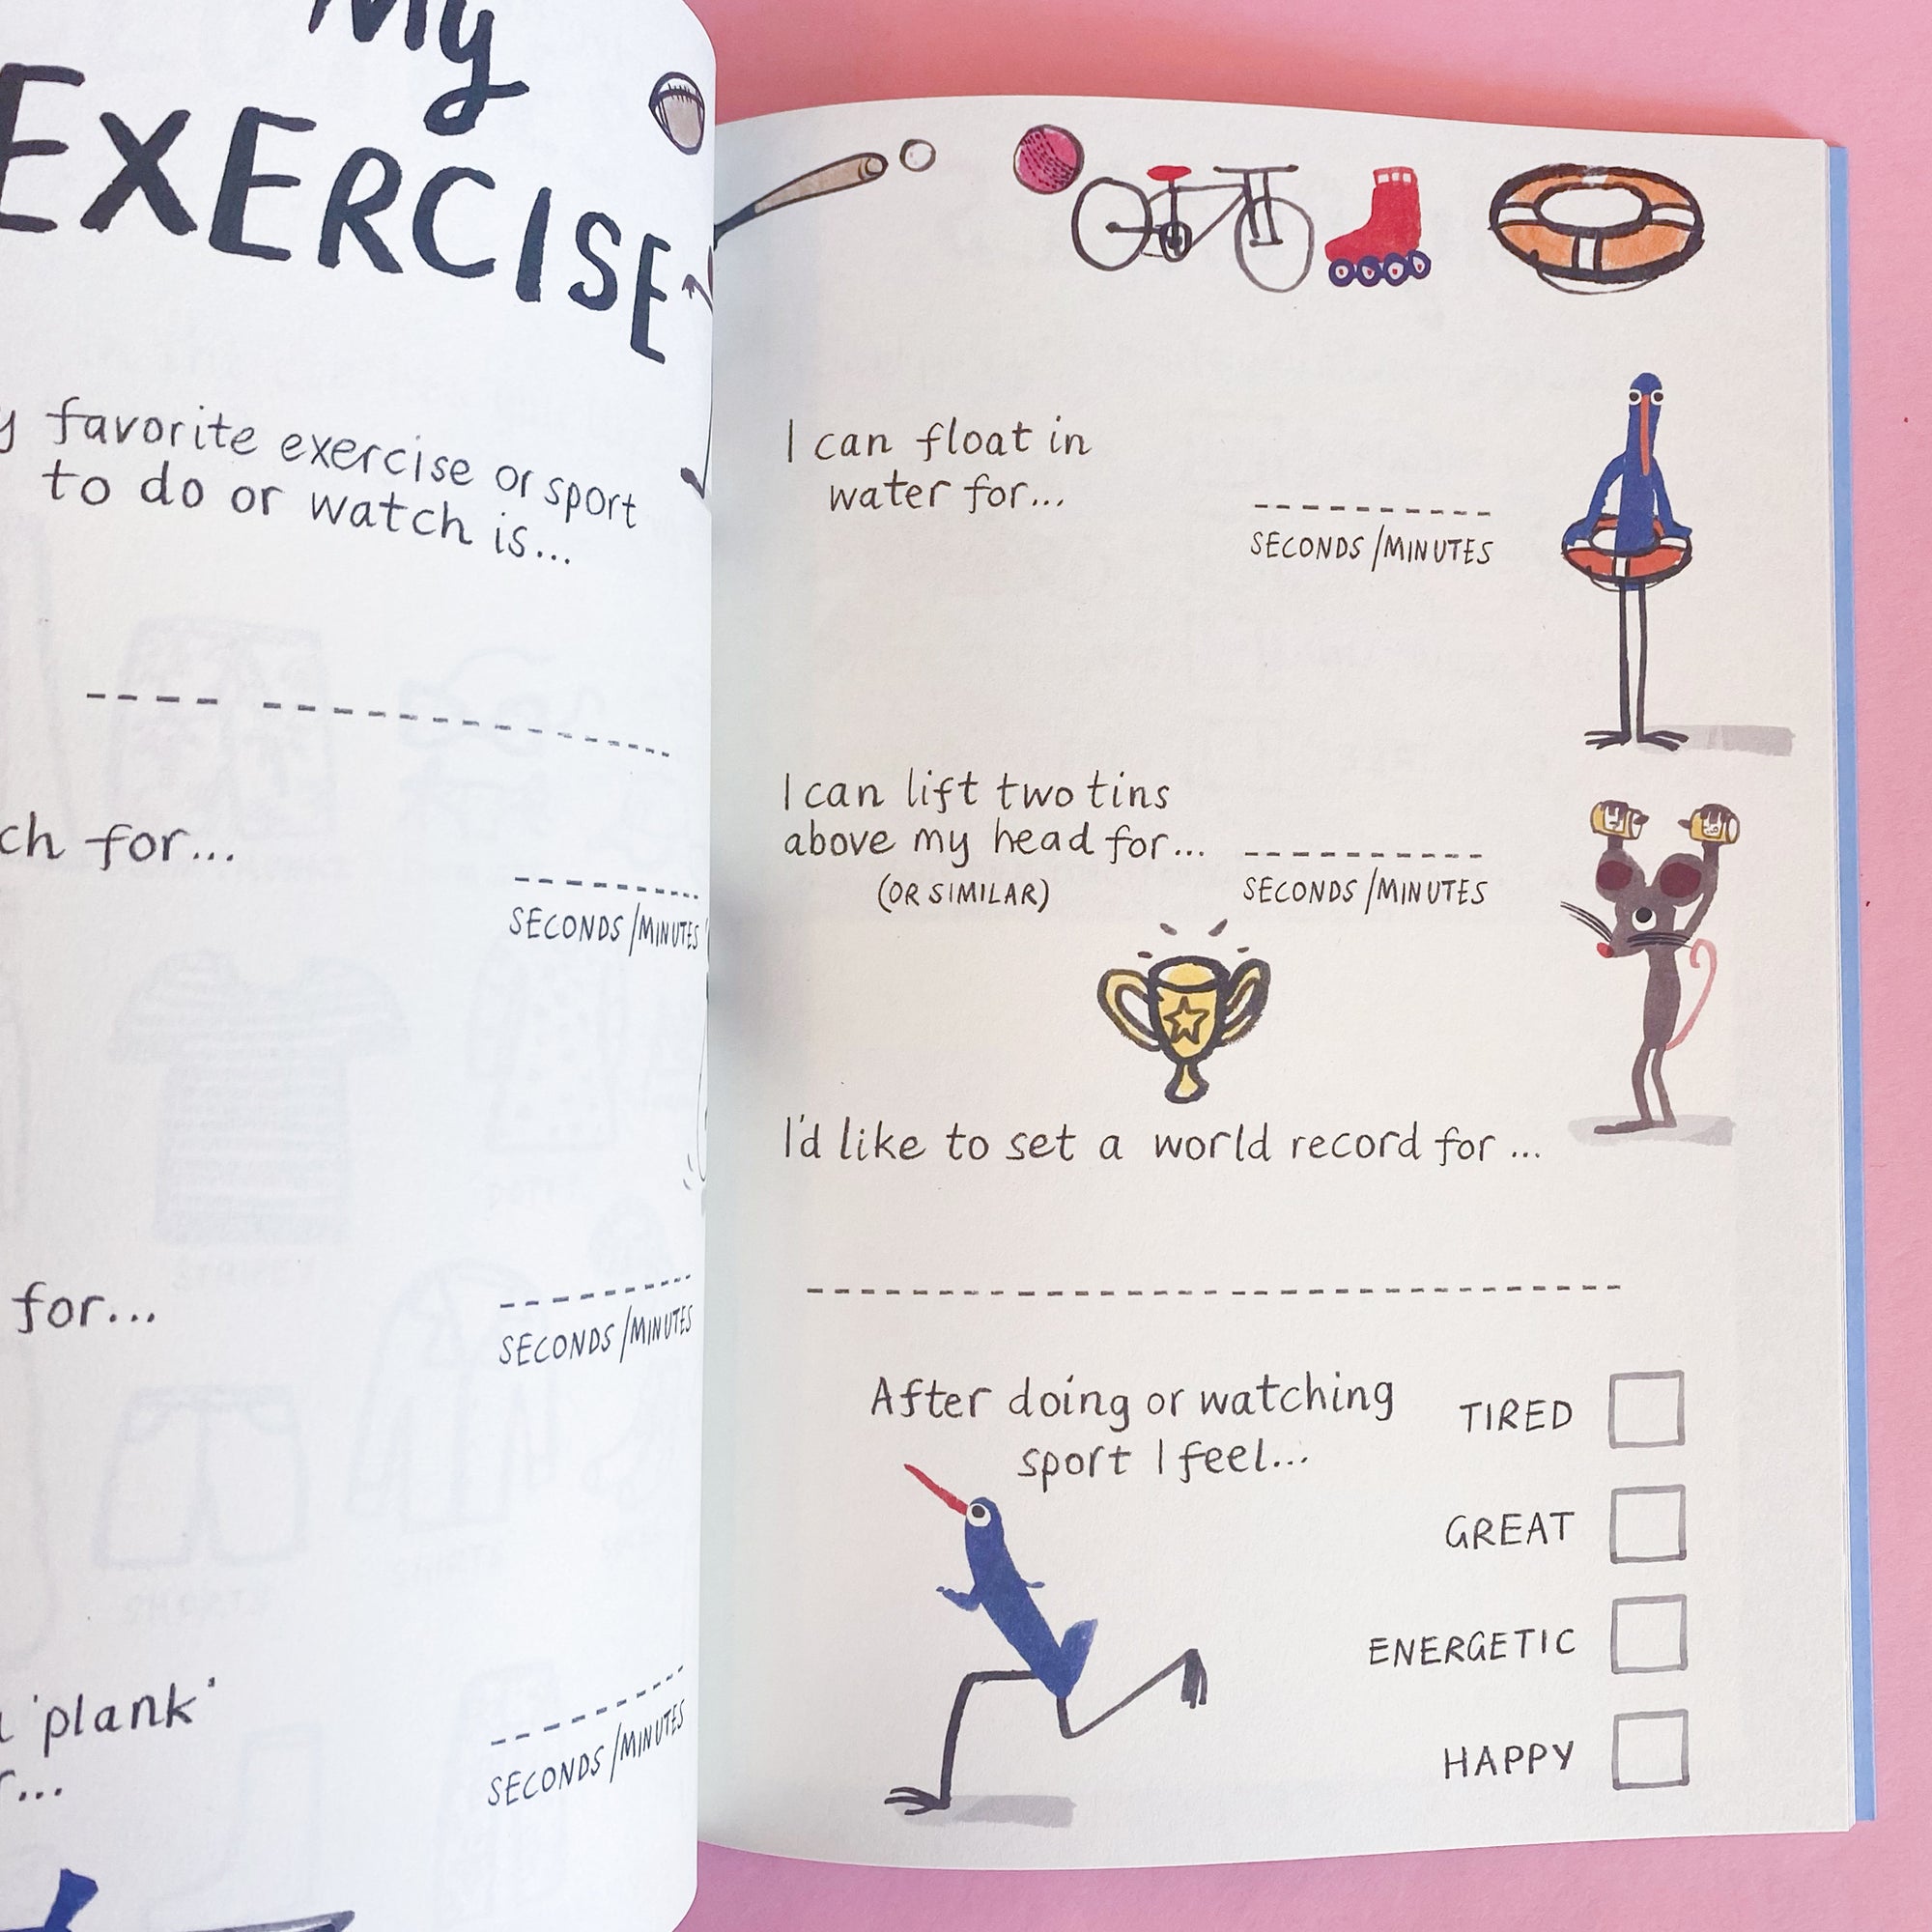 My
EXERCISE
favorite exercise or sport
to do or watch is...
for...
SECONDS/MINUTES
for...
SECONDS/MINUTES
'plank'
SECONDS/MINUTES
I can float in
water for...
SECONDS/MINUTES
I can lift two tins
above my head for...
(OR SIMILAR)
SECONDS/MINUTES
I'd like to set a world record for...
After doing or watching
sport I feel...
TIRED
GREAT
ENERGETIC
HAPPY